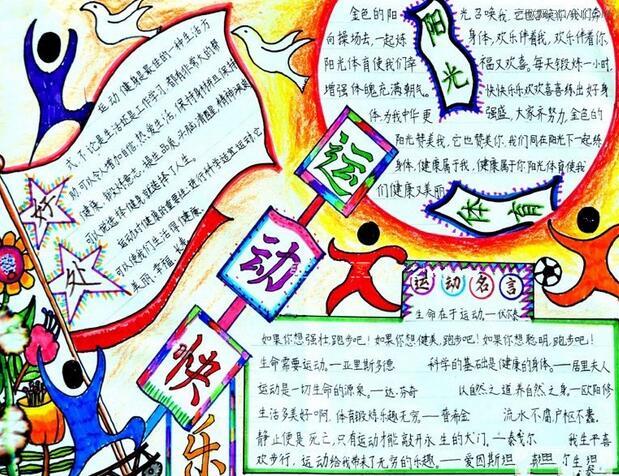 运动健身是最佳的一种生活方
式,不论是生活还是工作学习,都有非常大的帮
助可以令人增加自信,热爱生活,保持身材并且保持
健康,锻炼意志,提生品美,头脑清醒,精神焕发
可以说选择健康就选择了人生。
运动对健康的重要性,进行科学适宜运动它
可以使我们生活得健康、
美丽、幸福、长寿
好
处
金色的阳光召唤我,它也召唤你,我们奔
向操场去,一起练身体,欢乐伴着我,欢乐伴着你,
阳光体育使我们幸福又欢喜。每天锻炼一小时,
增强体魄充满朝气。快快乐乐欢欢喜喜练出好身
体,为我中华更强盛,大家齐努力,金色的
阳光赞美我,它也赞美你,我们同在阳光下一起练
身体,健康属于我,健康属于你阳光体育使我
们健康又美丽
阳光
体育
运
动
快
乐
运动名言
生命在于运动。—伏尔泰
如果你想强壮,跑步吧!如果你想健美,跑步吧!如果你想聪明,跑步吧!
生命需要运动。—亚里斯多德 科学的基础是健康的身体。—居里夫人
运动是一切生命的源泉。—达·芬奇 以自然之道,养自然之身。—欧阳修
生活多美好啊,体育锻炼乐趣无穷。—普希金 流水不腐,户枢不蠹,
静止便是死亡,只有运动才能敲开永生的大门。—泰戈尔 我生平喜
欢步行,运动给我带来了无穷的乐趣。—爱因斯坦